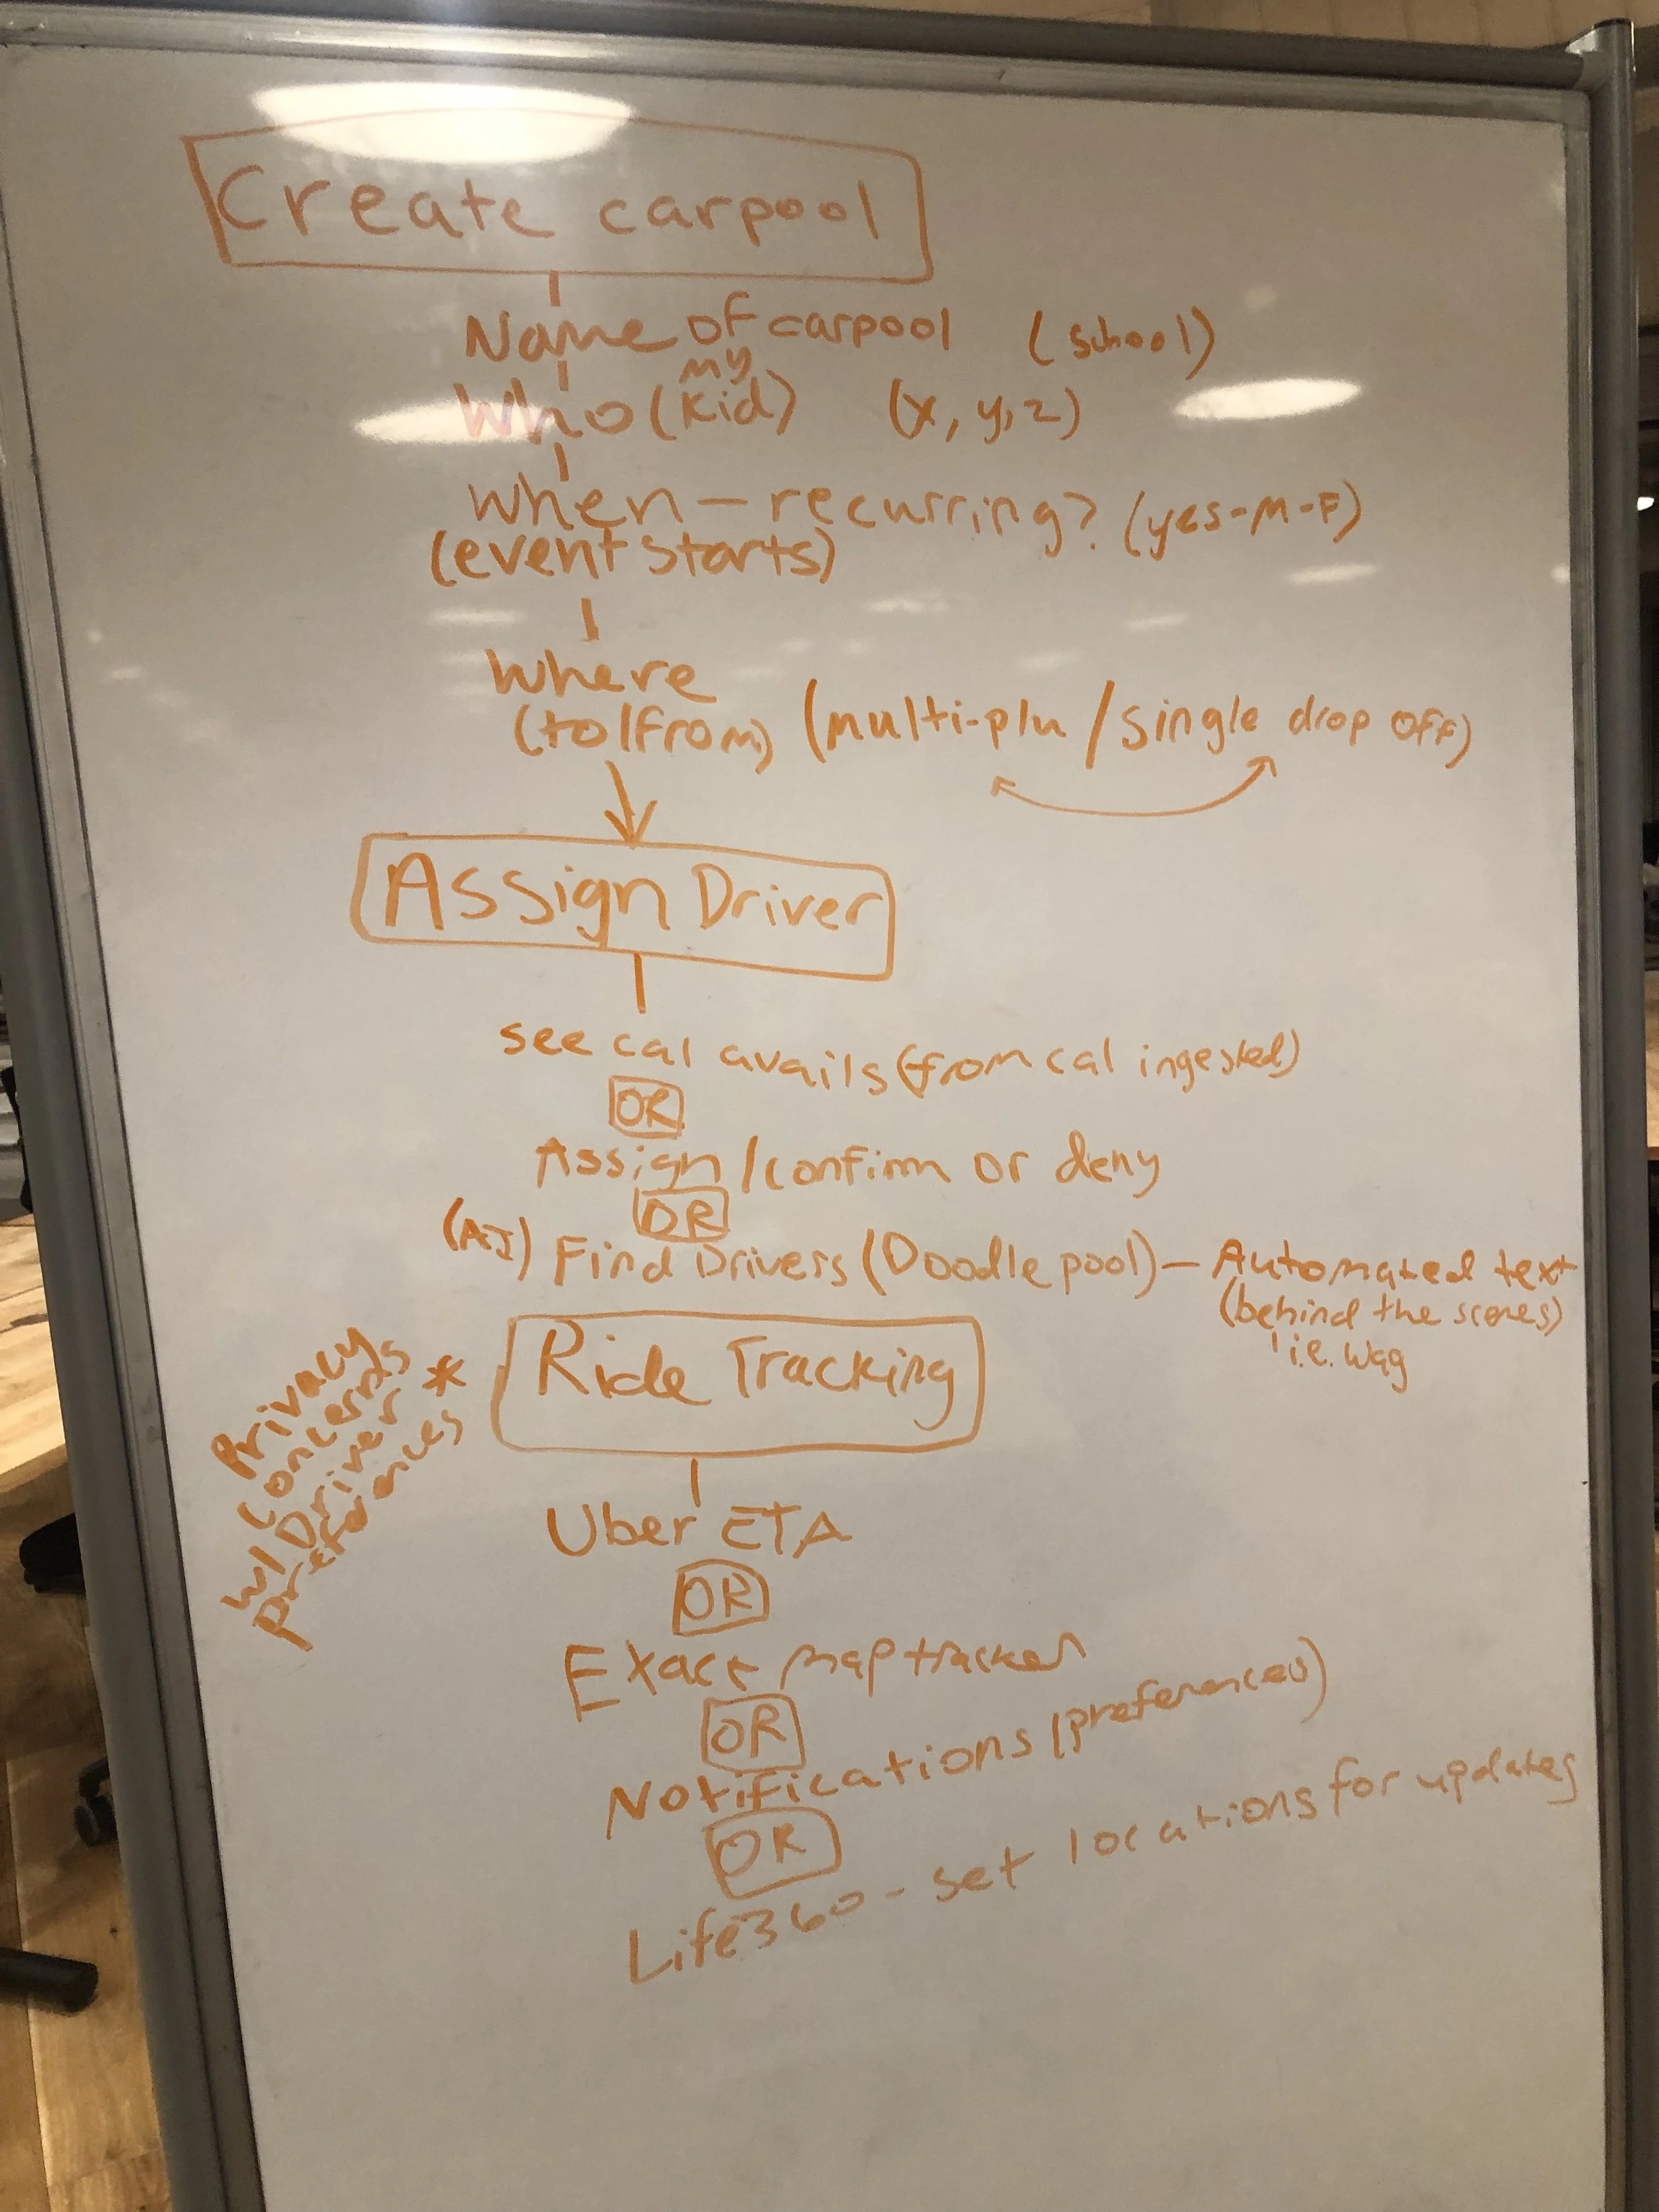 Create carpool
Name of carpool (school)
my
Who (kid) (x, y, z)
When - recurring? (yes-M-F)
(event starts)
Where
(to/from) (multi-plu / single drop off)
Assign Driver
see cal avails (from cal ingested)
OR
Assign / confirm or deny
OR
(AI) Find Drivers (Doodle pool) - Automated text
(behind the scenes)
i.e. Wag
Ride Tracking
*
Privacy
concerns
w/ Driver
preferences
Uber ETA
OR
Exact map tracker
OR
Notifications (preferences)
OR
Life360 - set locations for updates